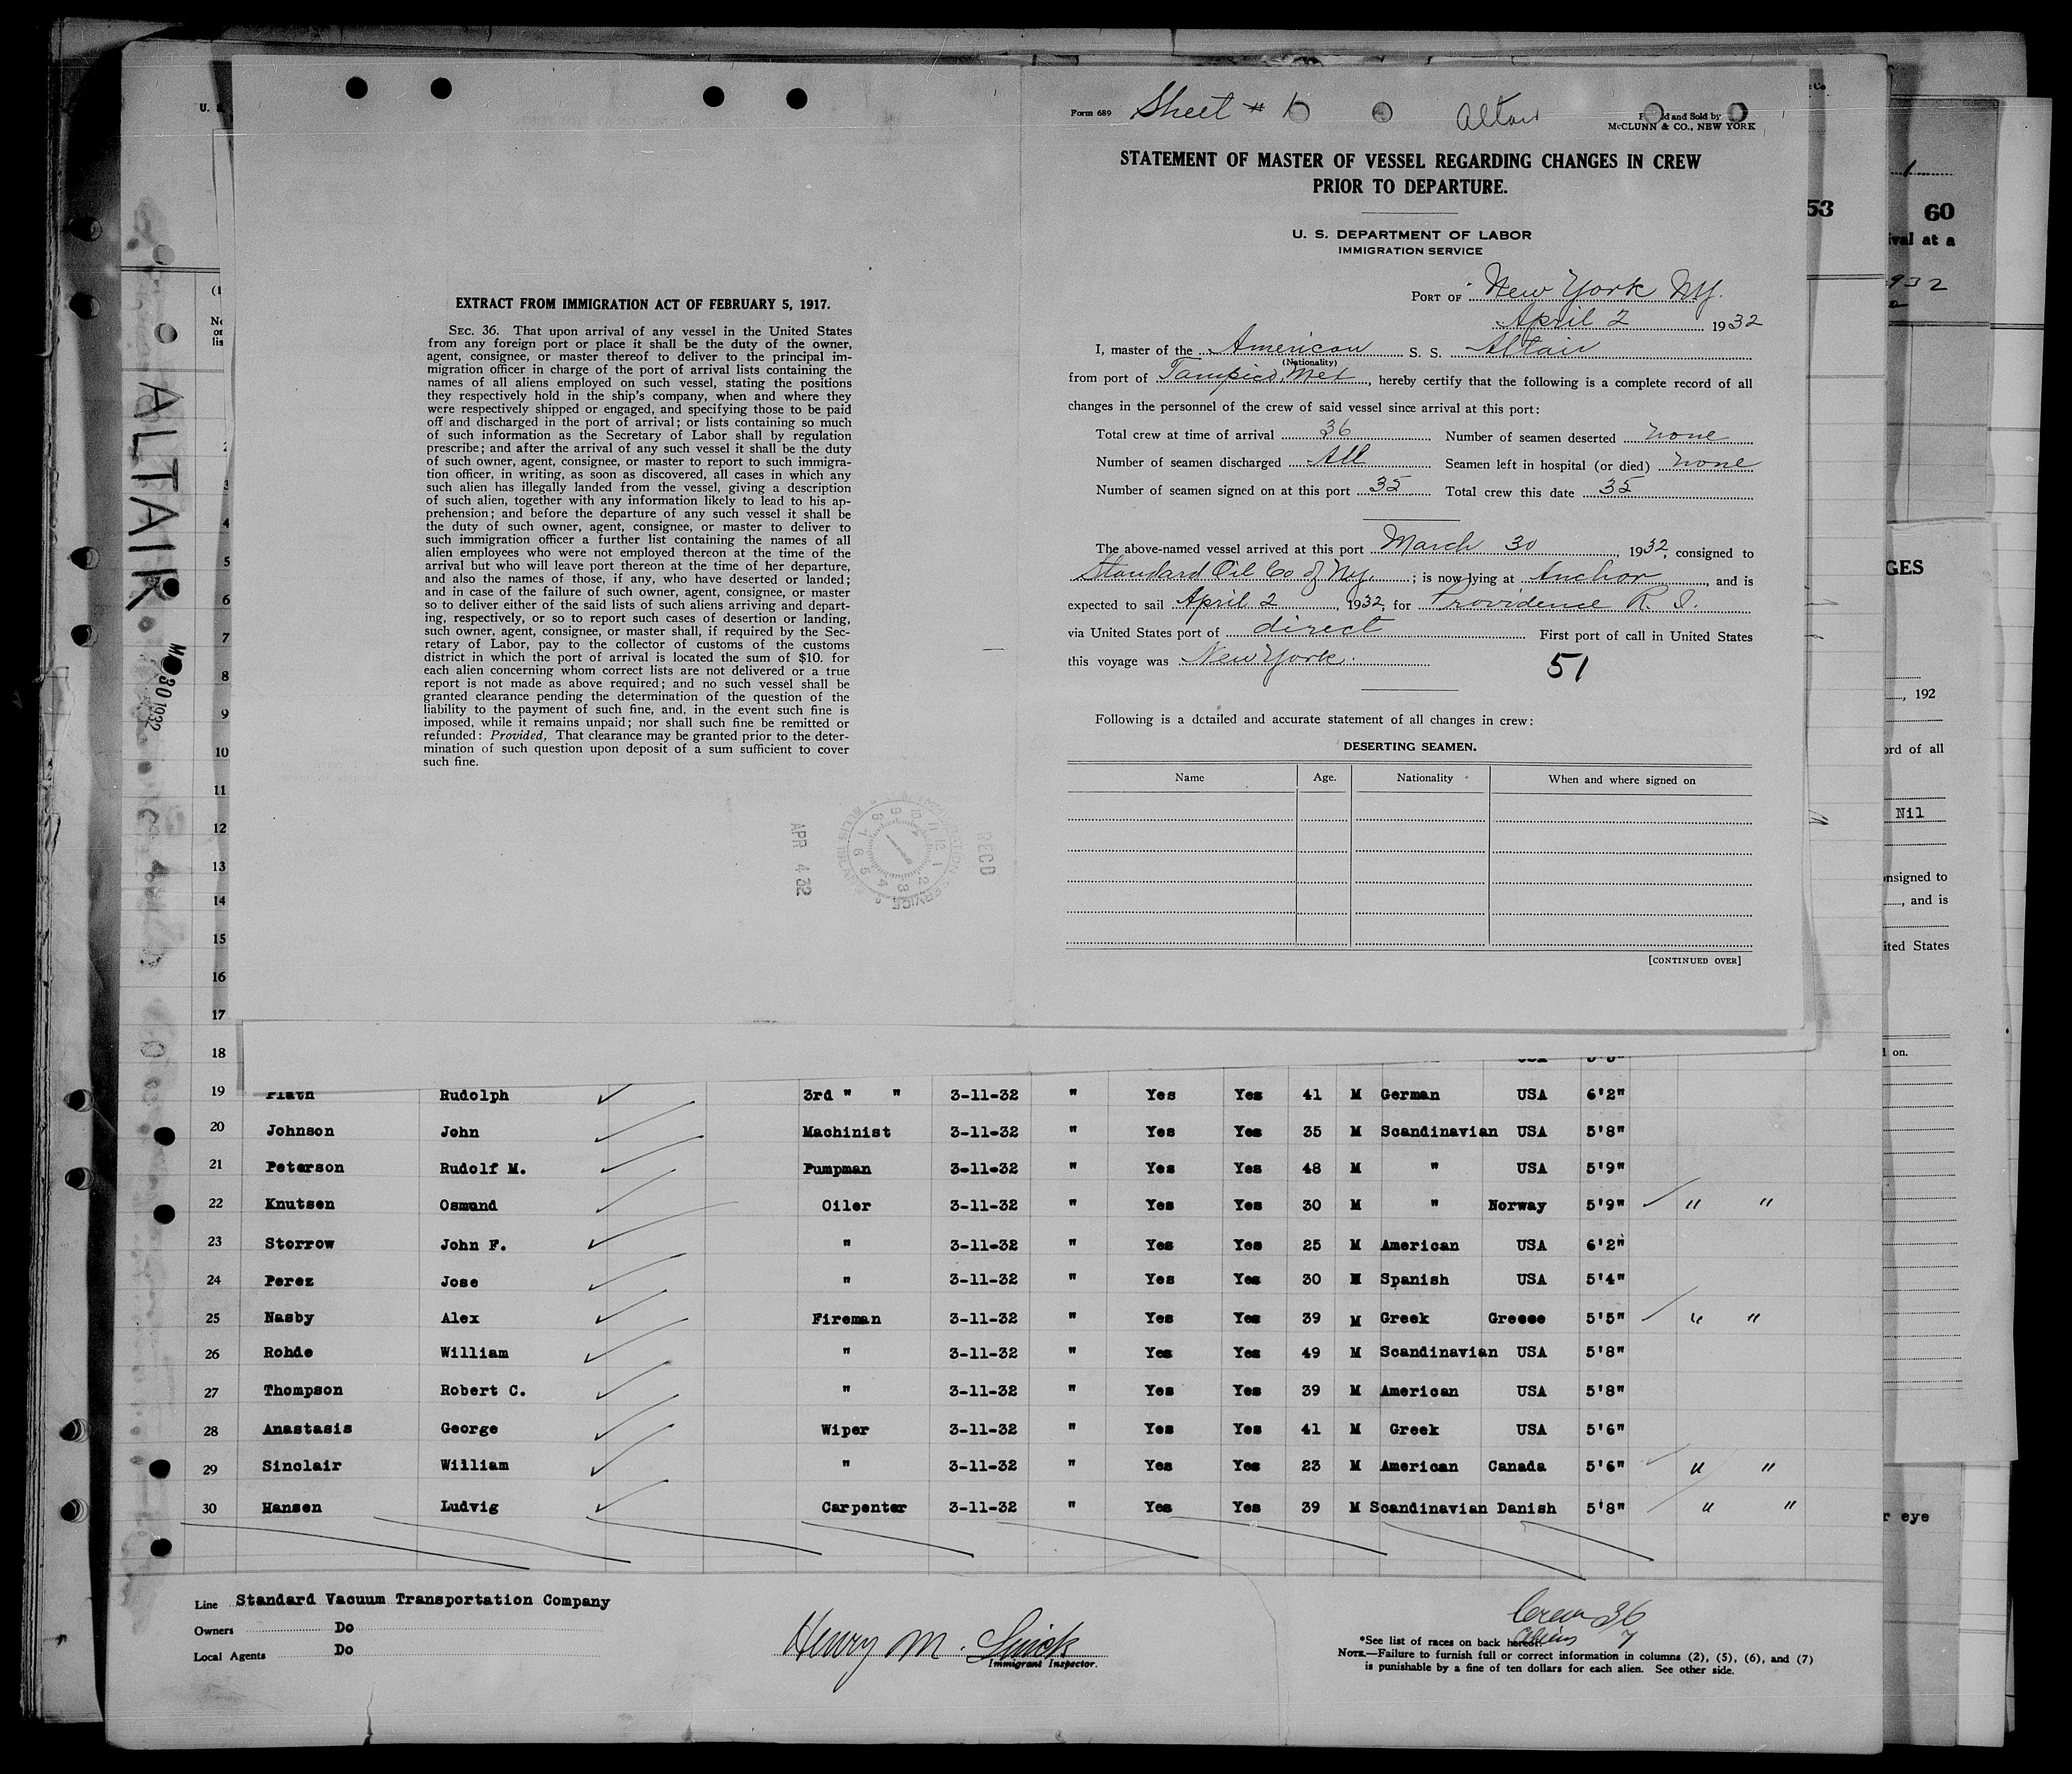 EXTRACT FROM IMMIGRATION ACT OF FEBRUARY 5, 1917.
SEC. 36. That upon arrival of any vessel in the United States
from any foreign port or place it shall be the duty of the owner,
agent, consignee, or master thereof to deliver to the principal im-
migration officer in charge of the port of arrival lists containing the
names of all aliens employed on such vessel, stating the positions
they respectively hold in the ship's company, when and where they
were respectively shipped or engaged, and specifying those to be paid
off and discharged in the port of arrival; or lists containing so much
of such information as the Secretary of Labor shall by regulation
prescribe; and after the arrival of any such vessel it shall be the duty
of such owner, agent, consignee, or master to report to such immigra-
tion officer, in writing, as soon as discovered, all cases in which any
such alien has illegally landed from the vessel, giving a description
of such alien, together with any information likely to lead to his ap-
prehension; and before the departure of any such vessel it shall be
the duty of such owner, agent, consignee, or master to deliver to
such immigration officer a further list containing the names of all
alien employees who were not employed thereon at the time of the
arrival but who will leave port thereon at the time of her departure,
and also the names of those, if any, who have deserted or landed;
and in case of the failure of such owner, agent, consignee, or master
so to deliver either of the said lists of such aliens arriving and depart-
ing, respectively, or so to report such cases of desertion or landing,
such owner, agent, consignee, or master shall, if required by the Sec-
retary of Labor, pay to the collector of customs of the customs
district in which the port of arrival is located the sum of $10. for
each alien concerning whom correct lists are not delivered or a true
report is not made as above required; and no such vessel shall be
granted clearance pending the determination of the question of the
liability to the payment of such fine, and, in the event such fine is
imposed, while it remains unpaid; nor shall such fine be remitted or
refunded: Provided, That clearance may be granted prior to the deter-
mination of such question upon deposit of a sum sufficient to cover
such fine.
APR 4 32
RECD
Form 689 Sheet # 1 Altair
and Sold by
McCLUNN & CO., NEW YORK
STATEMENT OF MASTER OF VESSEL REGARDING CHANGES IN CREW
PRIOR TO DEPARTURE.
U. S. DEPARTMENT OF LABOR
IMMIGRATION SERVICE
PORT OF New York NY.
April 2 1932
I, master of the American S. S. Altair
(Nationality)
from port of Tampico, Mex, hereby certify that the following is a complete record of all
changes in the personnel of the crew of said vessel since arrival at this port:
Total crew at time of arrival 36 Number of seamen deserted none
Number of seamen discharged All Seamen left in hospital (or died) none
Number of seamen signed on at this port 35 Total crew this date 35
The above-named vessel arrived at this port March 30, 1932, consigned to
Standard Oil Co of NY.; is now lying at Anchor, and is
expected to sail April 2, 1932, for Providence R. I.
via United States port of direct First port of call in United States
this voyage was New York. 51
Following is a detailed and accurate statement of all changes in crew:
DESERTING SEAMEN.
Name Age. Nationality When and where signed on
[CONTINUED OVER]
ALTAIR
30 1932
53
60
ival at a
932
GES
, 192
ord of all
Nil
nsigned to
, and is
ited States
on.
r eye
4
5
6
7
8
9
10
11
12
13
14
15
16
17
18
19 Plath Rudolph 3rd " " 3-11-32 " Yes Yes 41 M German USA 6'2"
20 Johnson John Machinist 3-11-32 " Yes Yes 35 M Scandinavian USA 5'8"
21 Peterson Rudolf M. Pumpman 3-11-32 " Yes Yes 48 M " USA 5'9"
22 Knutsen Osmund Oiler 3-11-32 " Yes Yes 30 M " Norway 5'9" " "
23 Storrow John F. " 3-11-32 " Yes Yes 25 M American USA 6'2"
24 Perez Jose " 3-11-32 " Yes Yes 30 M Spanish USA 5'4"
25 Nasby Alex Fireman 3-11-32 " Yes Yes 39 M Greek Greece 5'5" " "
26 Rohde William " 3-11-32 " Yes Yes 49 M Scandinavian USA 5'8"
27 Thompson Robert C. " 3-11-32 " Yes Yes 39 M American USA 5'8"
28 Anastasis George Wiper 3-11-32 " Yes Yes 41 M Greek USA 5'6"
29 Sinclair William " 3-11-32 " Yes Yes 23 M American Canada 5'6" " "
30 Hansen Ludvig Carpenter 3-11-32 " Yes Yes 39 M Scandinavian Danish 5'8" " "
Line Standard Vacuum Transportation Company
Owners Do
Local Agents Do
Henry M.
Immigrant Inspector.
Crew 36
Aliens 7
*See list of races on back hereof.
NOTE.—Failure to furnish full or correct information in columns (2), (5), (6), and (7)
is punishable by a fine of ten dollars for each alien. See other side.